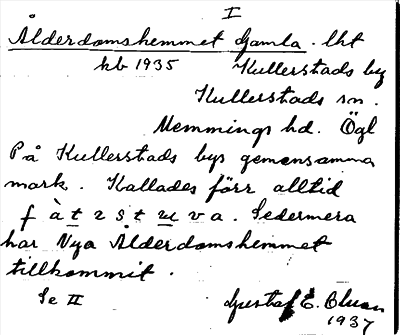 I
Ålderdomshemmet Gamla. lht
kb 1935 Kullerstads by
Kullerstads sn.
Memmings hd. Ögl
På Kullerstads bys gemensamma
mark. Kallades förr alltid
f à t z s t u v a. Sedermera
har Nya Ålderdomshemmet
tillkommit.
Se II Gustaf E.
1937